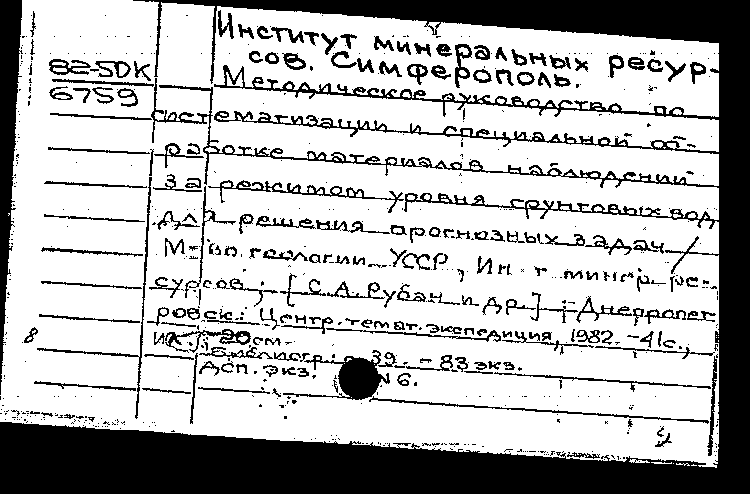 Институт минеральных ресур-
сов. Симферополь.
82-5DK
6759
Методическое руководство по
систематизации и специальной об-
работке материалов наблюдений
за режимом уровня грунтовых вод
для решения прогнозных задач /
М-во геологии УССР, Ин-т минер. ре-
сурсов; [С.А. Рубан и др.] - Днепропет
ровск: Центр. темат. экспедиция, 1982. - 41 с.,
ил.; 20 см.
8
Библиогр.: с. 39. - 83 экз.
ДСП. экз. N 6.